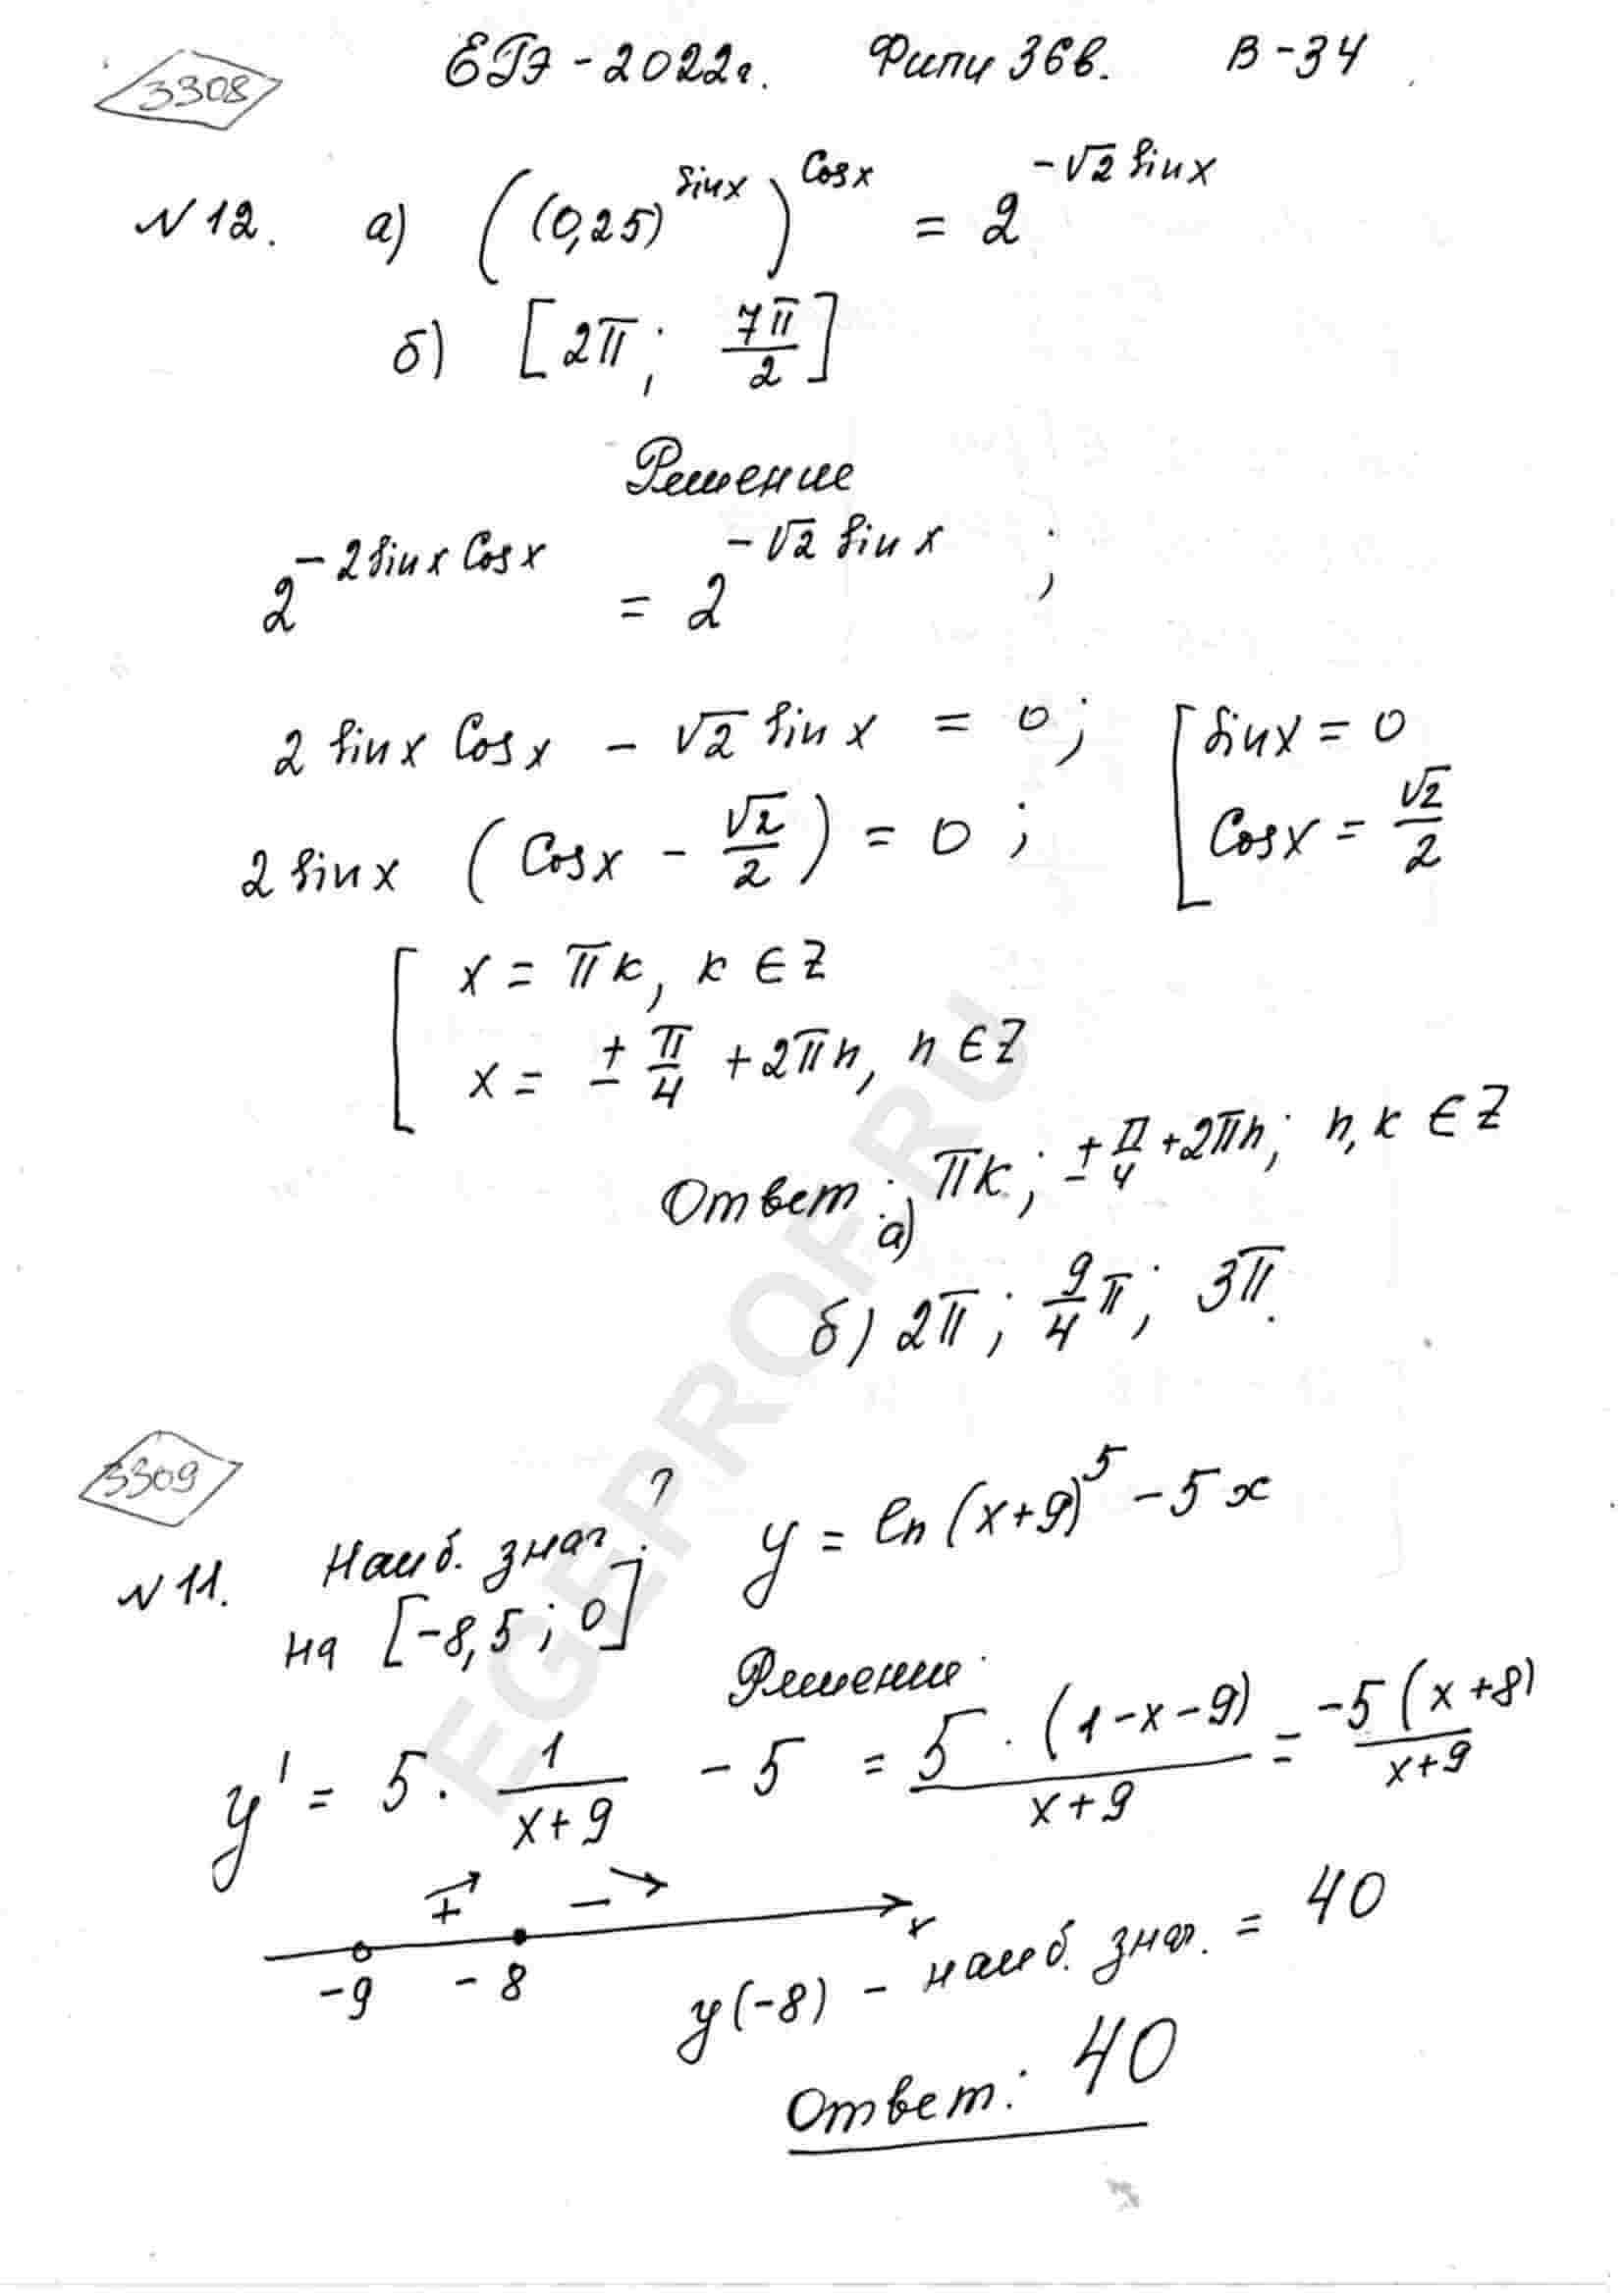 3308
ЕГЭ - 2022г. Фипи 36в. В-34
N 12. а) ((0,25)^{sinx})^{Cosx} = 2^{-√2 sinx}
б) [2π; 7π/2]
Решение
2^{-2sinx Cosx} = 2^{-√2 sinx};
2 sinx Cosx - √2 sinx = 0; [ sinx = 0
2 sinx (Cosx - √2/2) = 0; Cosx = √2/2
[ x = πk, k ∈ Z
x = ± π/4 + 2πn, n ∈ Z
Ответ: а) πk; ± π/4 + 2πn; n, k ∈ Z
б) 2π; 9/4 π; 3π.
3309
N 11. Наиб. знач? y = ln(x+9)^5 - 5x
на [-8,5; 0]
Решение
y' = 5 · 1/(x+9) - 5 = 5 · (1-x-9)/(x+9) = -5(x+8)/(x+9)
+ -
-9 -8 x
y(-8) - наиб. знач. = 40
Ответ: 40
EGEPROF.RU